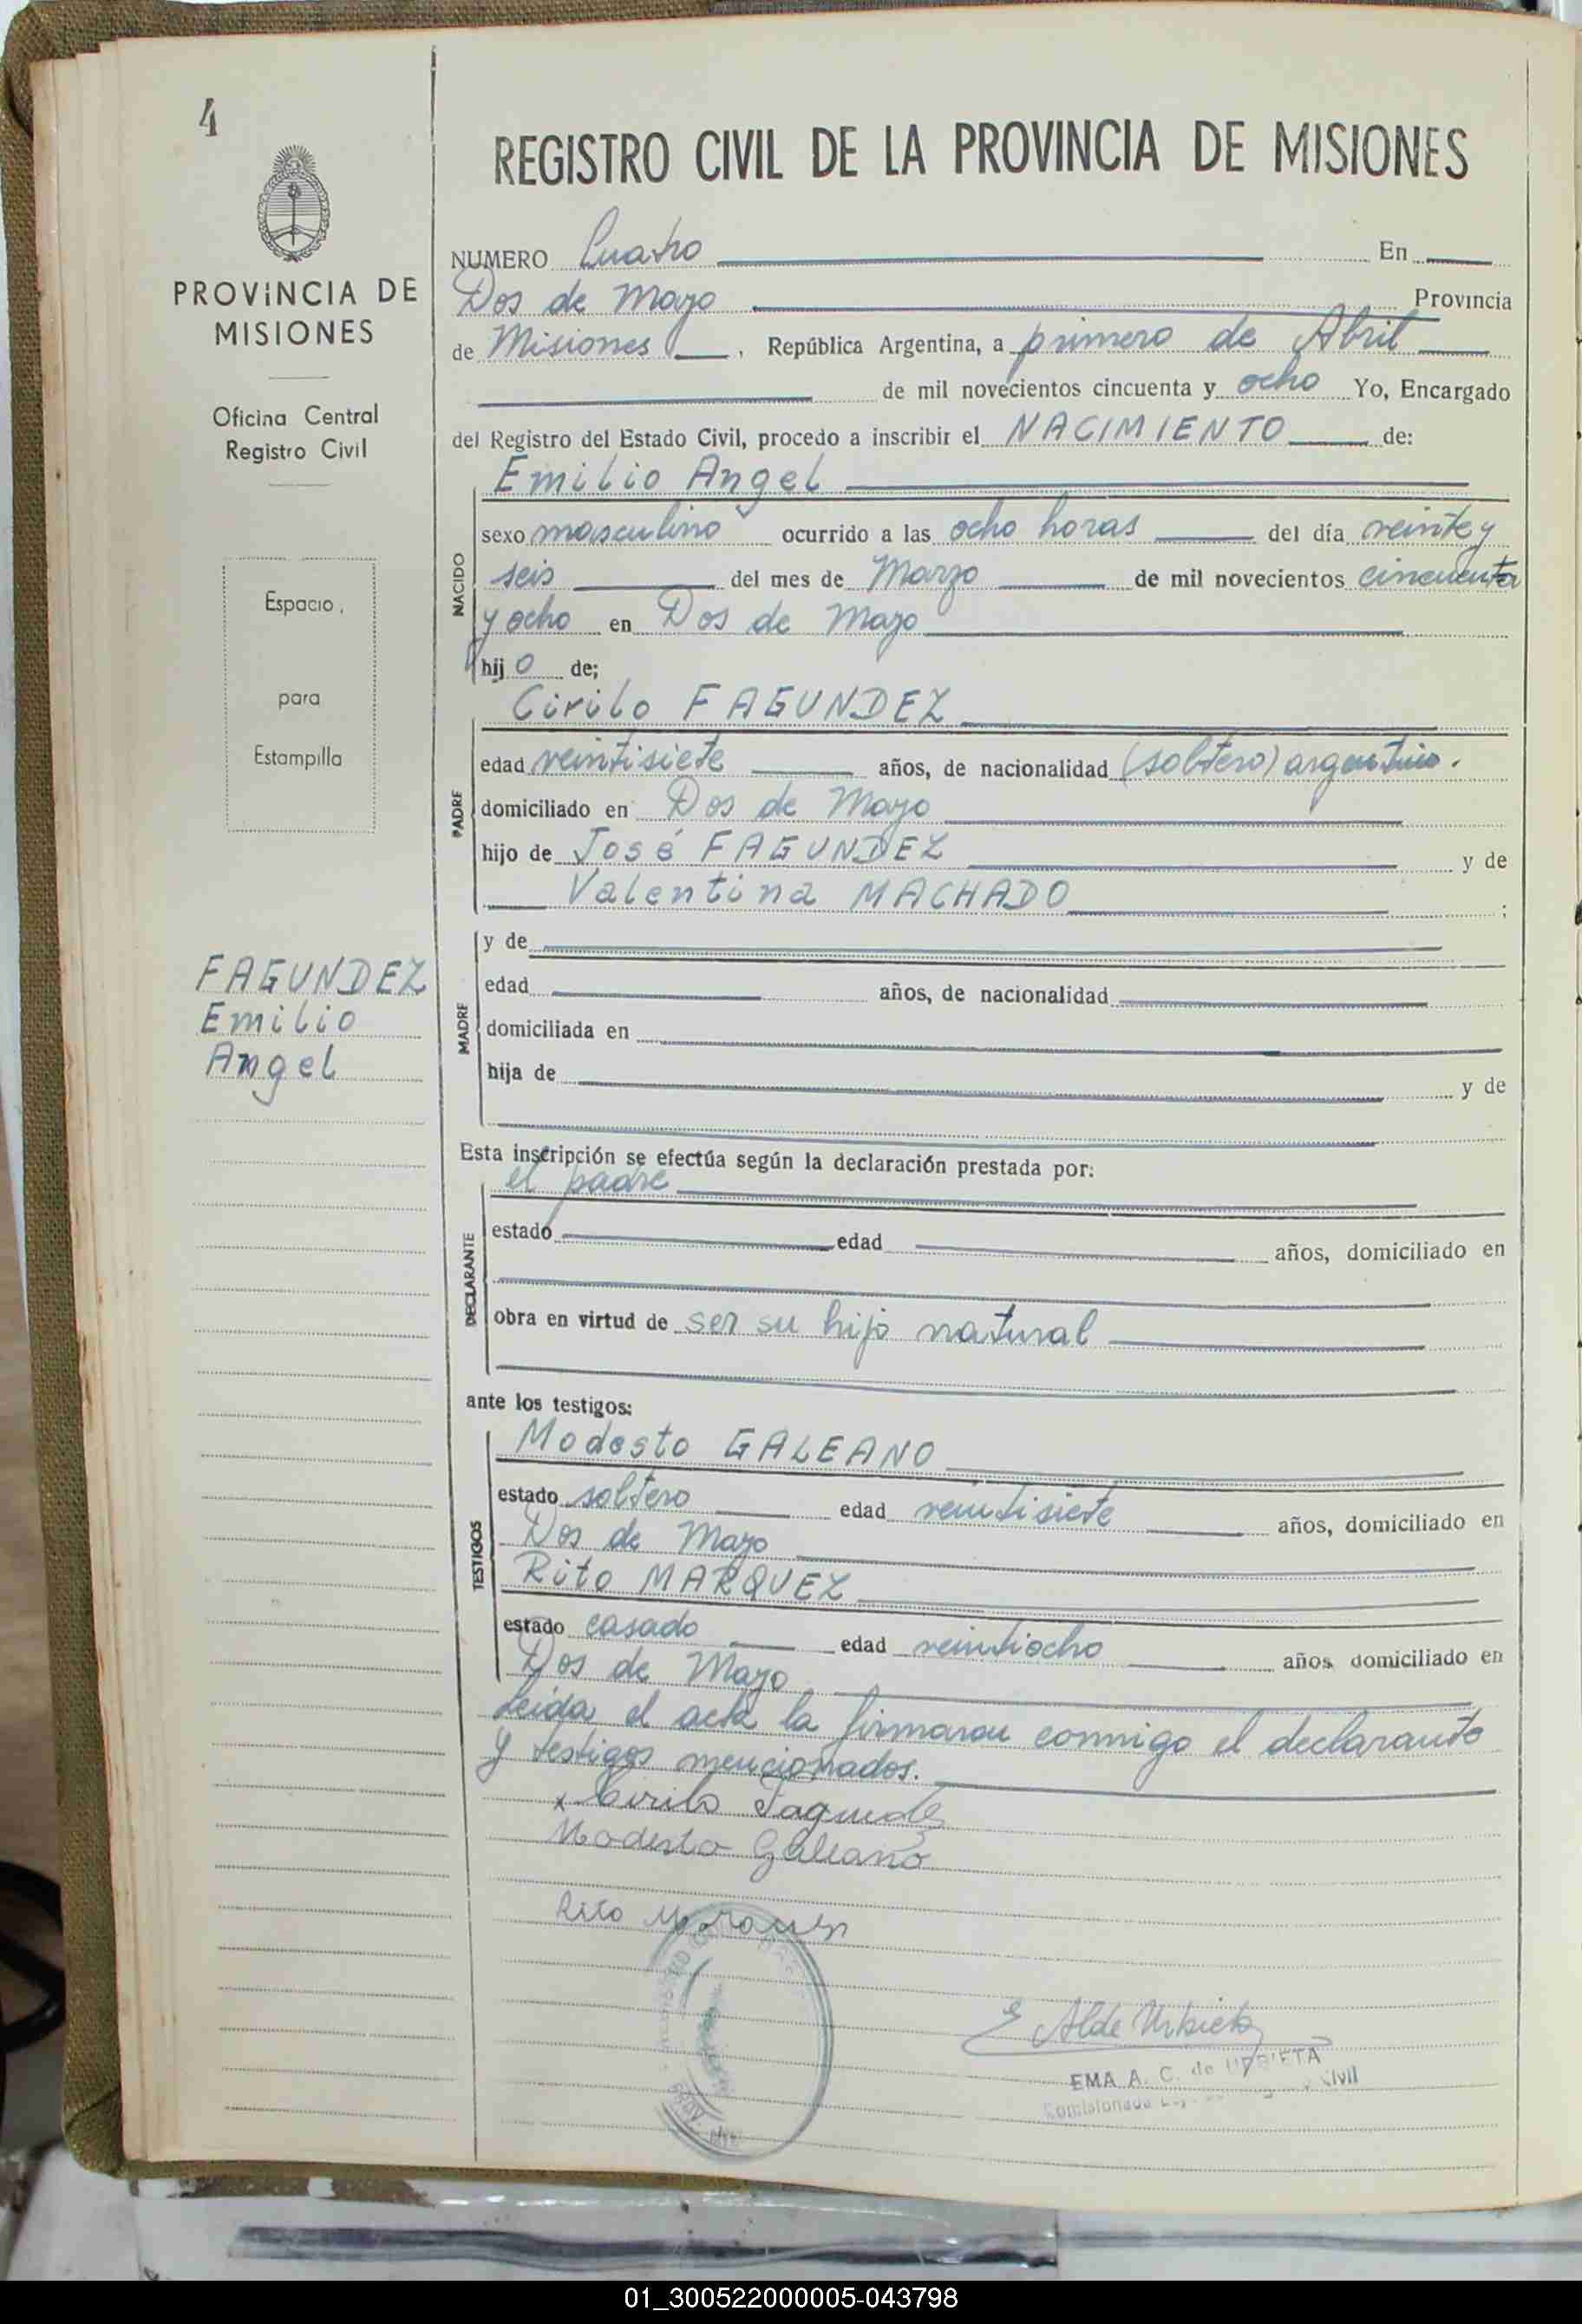 4
PROVINCIA DE
MISIONES
Oficina Central
Registro Civil
Espacio
para
Estampilla
FAGUNDEZ
Emilio
Angel
REGISTRO CIVIL DE LA PROVINCIA DE MISIONES
NUMERO Cuatro En
Dos de Mayo Provincia
de Misiones, República Argentina, a primero de Abril
de mil novecientos cincuenta y ocho Yo, Encargado
del Registro del Estado Civil, procedo a inscribir el NACIMIENTO de:
Emilio Angel
NACIDO
sexo masculino ocurrido a las ocho horas del día veinte y
seis del mes de Marzo de mil novecientos cincuenta
y ocho en Dos de Mayo
hijo de;
Cirilo FAGUNDEZ
PADRE
edad veintisiete años, de nacionalidad (soltero) argentino.
domiciliado en Dos de Mayo
hijo de José FAGUNDEZ y de
Valentina MACHADO ;
MADRE
y de
edad años, de nacionalidad
domiciliada en
hija de y de
Esta inscripción se efectúa según la declaración prestada por:
el padre
DECLARANTE
estado edad años, domiciliado en
obra en virtud de ser su hijo natural
ante los testigos:
Modesto GALEANO
TESTIGOS
estado soltero edad veintisiete años, domiciliado en
Dos de Mayo
Rito MARQUEZ
estado casado edad veintiocho años domiciliado en
Dos de Mayo
Leida el acta la firmaron conmigo el declarante
y testigos mencionados.
x Cirilo Fagundez
Modesto Galeano
Rito Marquez
E Alde Urbieta
EMA A. C. de URBIETA
Civil
01_300522000005-043798